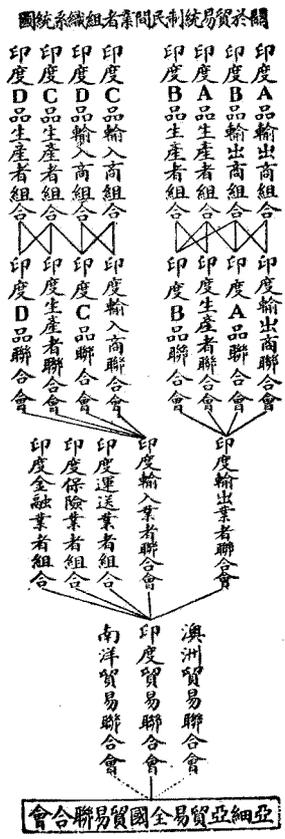 關於貿易統制民間業者組織系統圖
印度A品輸出商組合
印度B品輸出商組合
印度A品生產者組合
印度B品生產者組合
印度C品輸入商組合
印度D品輸入商組合
印度C品生產者組合
印度D品生產者組合
印度輸出商聯合會
印度A品聯合會
印度生產者聯合會
印度B品聯合會
印度輸入商聯合會
印度C品聯合會
印度生產者聯合會
印度D品聯合會
印度輸出業者聯合會
印度輸入業者聯合會
印度運送業者組合
印度保險業者組合
印度金融業者組合
澳洲貿易聯合會
印度貿易聯合會
南洋貿易聯合會
亞細亞貿易全國貿易聯合會